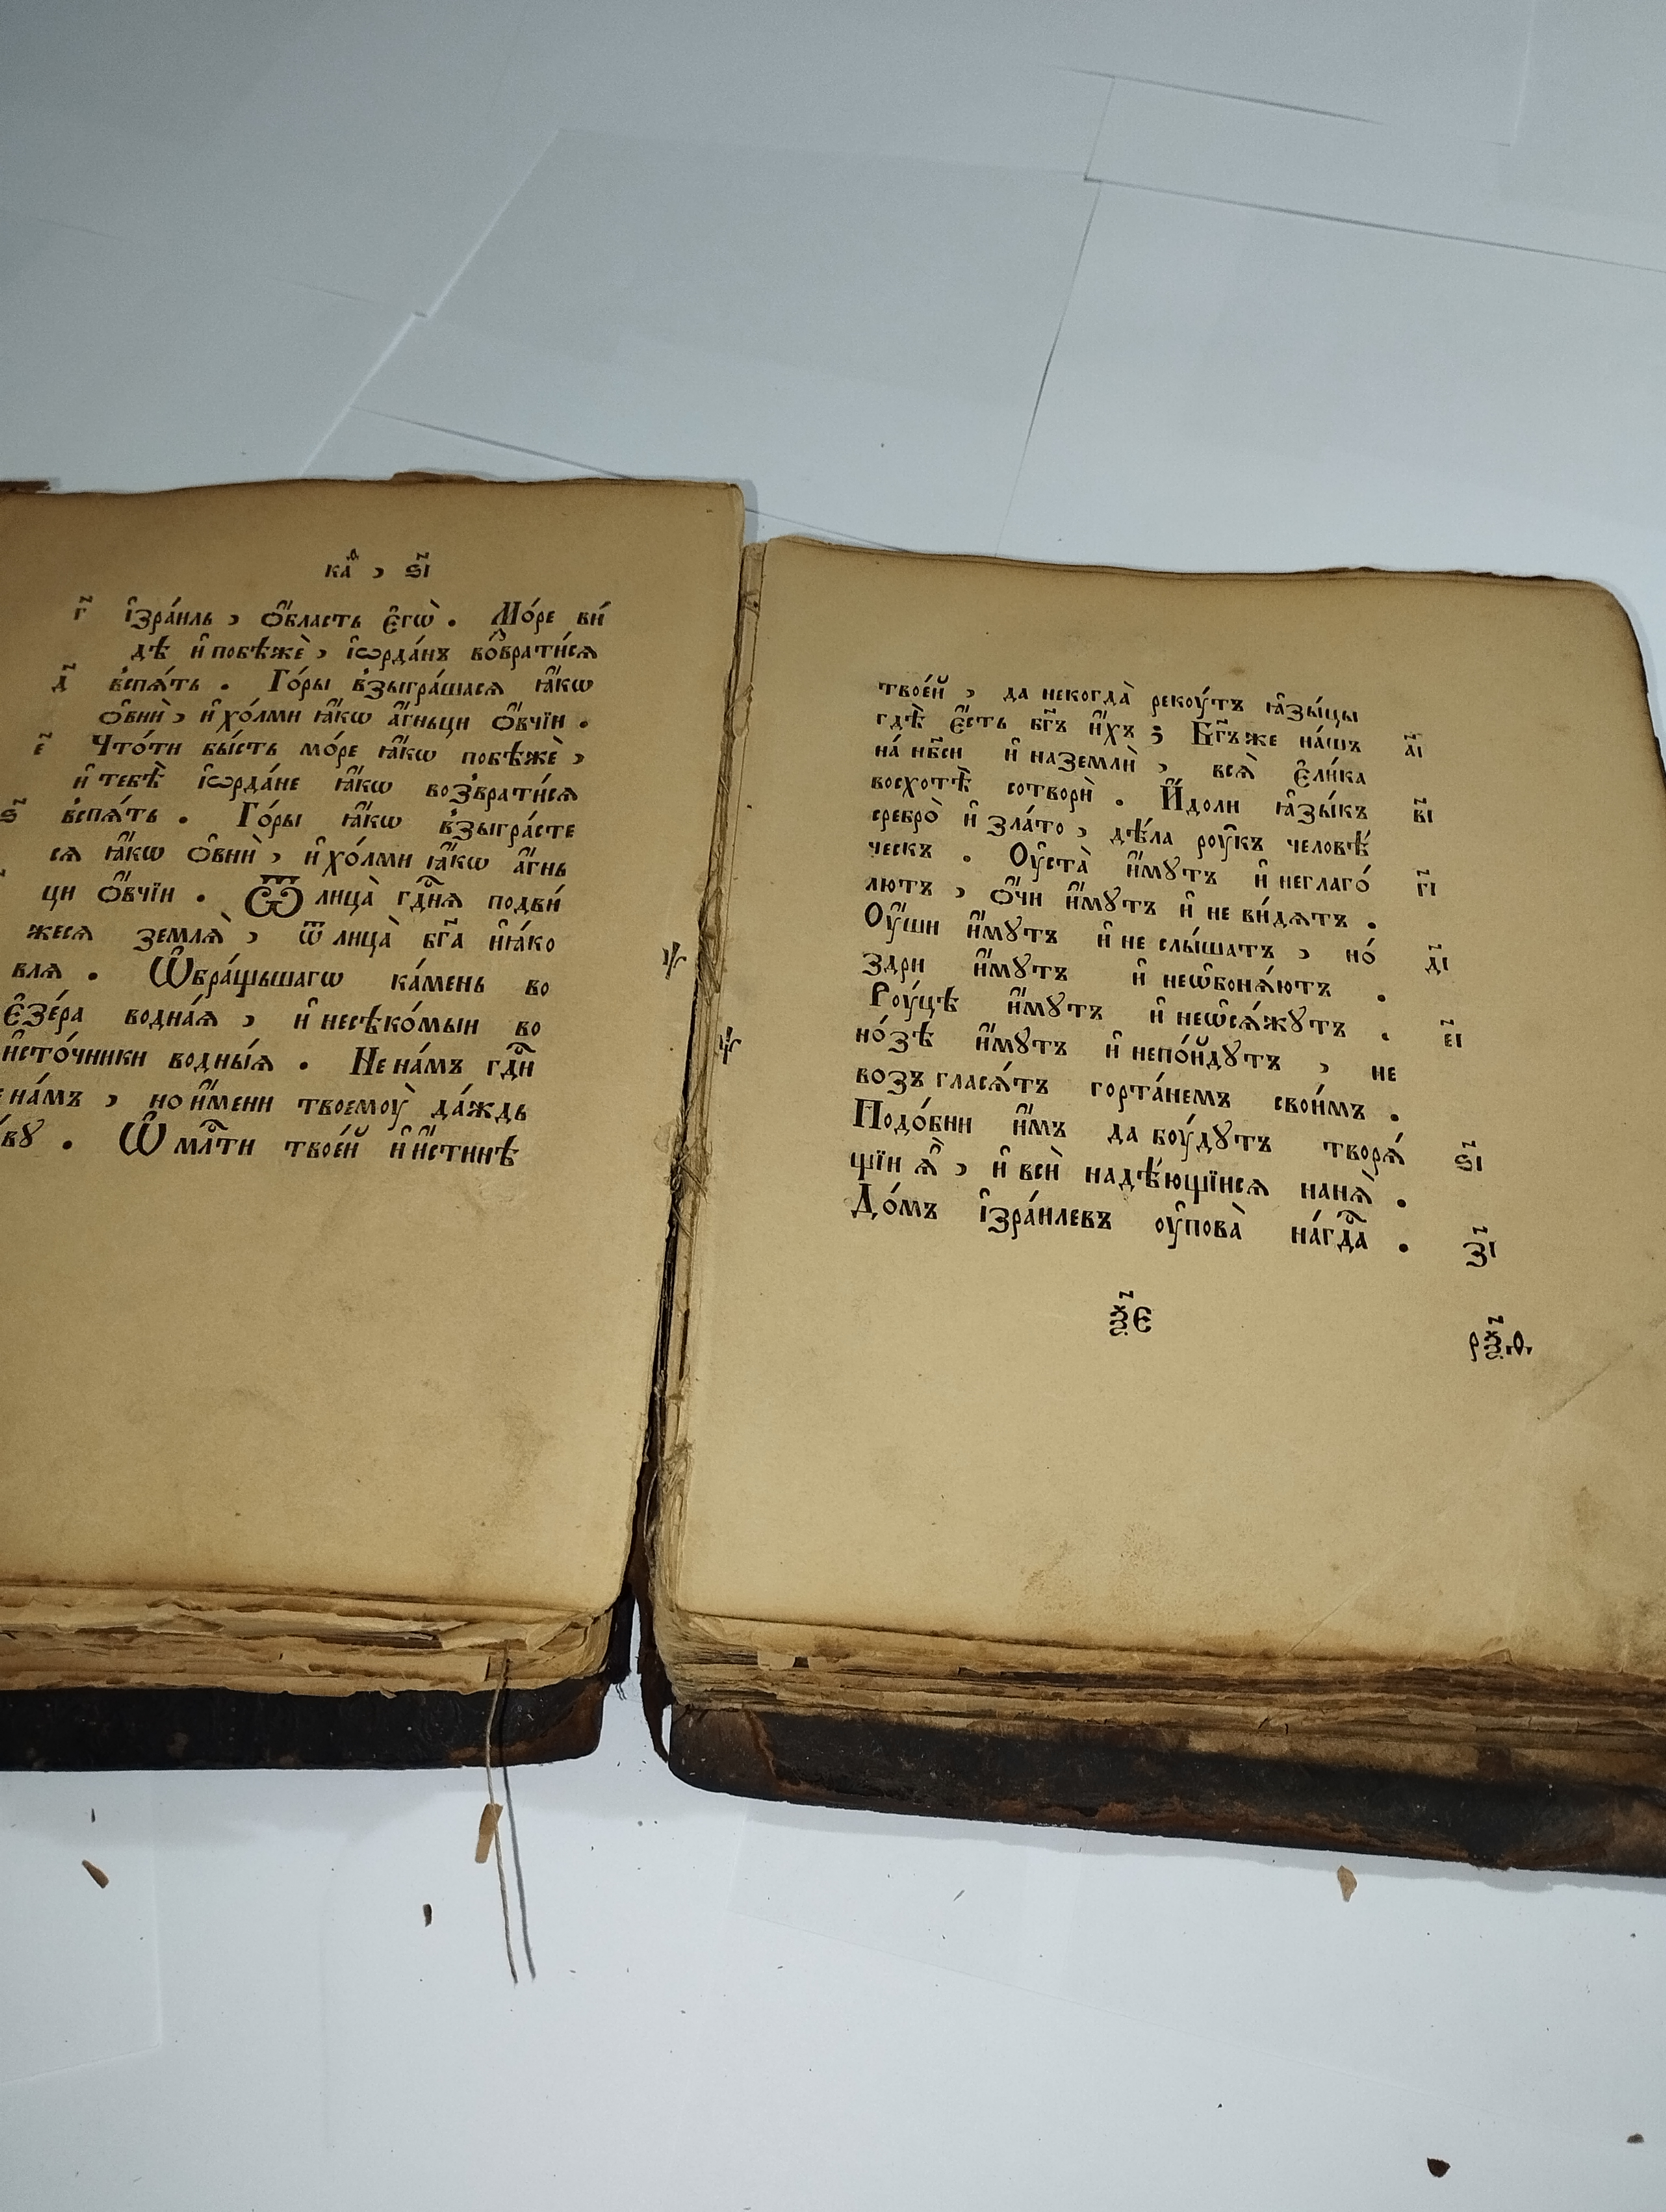 каѳ , ѕ҃і
г҃ і҆зра́иль , ѻ҆́бласть є҆гѡ̀ . Мо́ре ви́
дѣ и҆ побѣжѐ , і҆ѡрда́нъ во́звратисѧ
д҃ вспѧ́ть . Го́ры взыгра́шасѧ ꙗ҆́кѡ
ѻ҆внѝ , и҆ хо́лми ꙗ҆́кѡ а҆́гньцы ѻ҆́вчїи .
е҃ Что́ ти бы́сть мо́ре ꙗ҆́кѡ побѣжѐ ,
и҆ тебѣ̀ і҆ѡрда́не ꙗ҆́кѡ возврати́сѧ
ѕ҃ вспѧ́ть . Го́ры ꙗ҆́кѡ взыгра́сте
сѧ ꙗ҆́кѡ ѻ҆внѝ , и҆ хо́лми ꙗ҆́кѡ а҆́гнь
цы ѻ҆́вчїи . Ѿ лица̀ гд҇нѧ подви́
жесѧ землѧ̀ , ѿ лица̀ бг҃а и҆ꙗ́ко
влѧ . Ѡ҆бра́щьшагѡ ка́мень во
є҆зе́ра воднаѧ , и҆ несѣко́мыи во
и҆сто́чники водны́ѧ . Не на́мъ гд҇и
на́мъ , но и҆́мени твоемоу̀ да́ждь
вꙋ . Ѡ҆ млⷭ҇ти твое́й и҆ и҆́стинѣ
твое́й , да некогда̀ рекоу́тъ ꙗ҆зы́цы
гдѣ̀ є҆́сть бг҃ъ и҆́хъ ; Бг҃ъ же на́шъ а҃і
на́ нб҃си и҆ на землѝ , всѧ̀ є҆ли́ка
восхотѣ̀ сотворѝ . И҆́доли ꙗ҆зы́къ в҃і
сребро̀ и҆ зла́то , дѣ́ла роу́къ человѣ́
ческъ . Оу҆ста̀ и҆́мꙋтъ и҆ неглаго́ г҃і
лютъ , ѻ҆́чи и҆́мꙋтъ и҆ не ви́дѧтъ .
Оу҆́ши и҆́мꙋтъ и҆ не слы́шатъ , но́ д҃і
здри и҆́мꙋтъ и҆ неѡ҆бонѧ́ютъ .
Роу́цѣ и҆́мꙋтъ и҆ неѡ҆сѧ́жꙋтъ . е҃і
но́зѣ и҆́мꙋтъ и҆ непо́йдꙋтъ , не
возъ гласѧ́тъ горта́немъ свои́мъ .
Подо́бни и҆́мъ да боу́дꙋтъ творѧ́ ѕ҃і
щїи ѧ҆̀ , и҆ всѝ надѣ́ющїисѧ нанѧ̀ .
До́мъ і҆зра́илевъ оу҆пова̀ на́ гд҇а . з҃і
ѯ҃є
рѯ҃ѳ